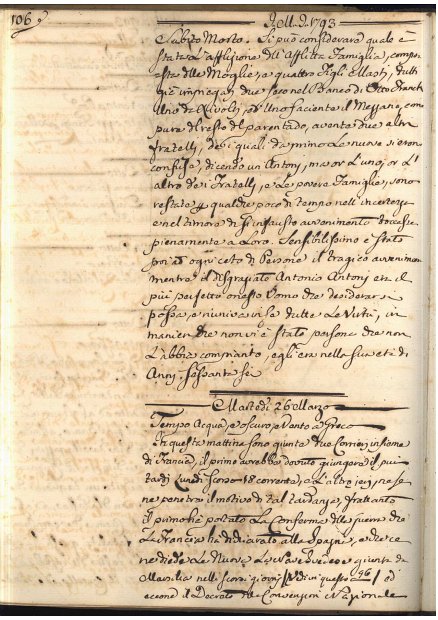 106
Dell. 1793
Subito Morto. Si può considerare quale è
stata l'afflisione dell'Afflitta Famiglia, compo
sta della Moglie, e quattro Figli Masti, tutti
già impiegati due sono nel Banco di
Uno da Rivolti, ed Uno faciente il Messano, com
pure il resto del parentado, avente due altri
fratelli, de i quali da primo le nuove si erano
confuse, dicendo un Antonj, ma or l'uno, or l'
altro de i Fratelli, e le povere Famiglie, sono
restate qualche poco di tempo nell'incertezza
e nel timore di sì infausto avvenimento
pienamente a Loro. Sensibilissimo è stato
poi ad ogni ceto di Persone il tragico avvenimen
mentre il disgraziato Antonio Antonj era il
più perfetto onesto Uomo che desiderar si
possa, e riuniva in se tutte le Virtù, in
manier che non vi è stato persona che non
l'abbia compianto, egli era nella sua età di
Anni sessanta sei
Martedì 26 Marzo
Tempo Acqua, e oscuro, e Vento a Greco
In questa mattina sono giunti due Corrieri in Roma
di Francia, il primo avrebbe dovuto giungere il
Lunedì scorso 18 corrente, e l'altro jeri, ne se
ne penetra il motivo di tal tardanza, frattanto
il primo hà portato la Conferma della guerra che
la Francia ha dichiarato alla Spagna, e
ne diede le Nuove la Nave Svedese giunta da
Marsilia nelli scorsi giorni / Vedi questo 96 / ed
eccone il Decreto della Convenzione Nazionale